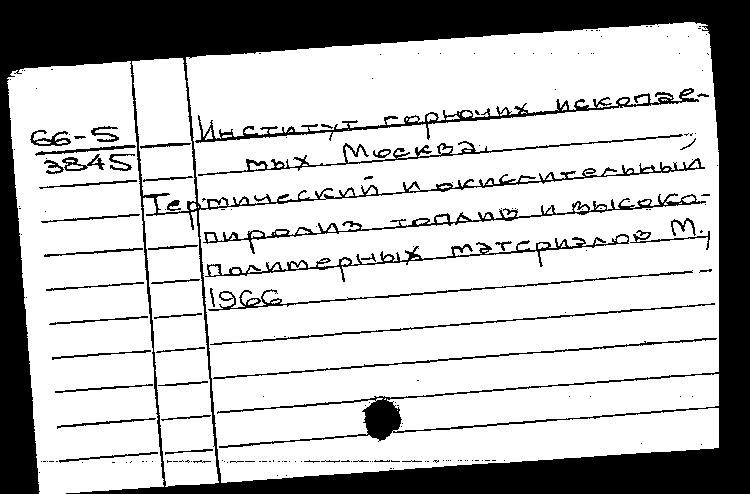 66-5
3845
Институт горючих ископае-
мых. Москва.
Термический и окислительный
пиролиз топлив и высоко-
полимерных материалов М.,
1966.